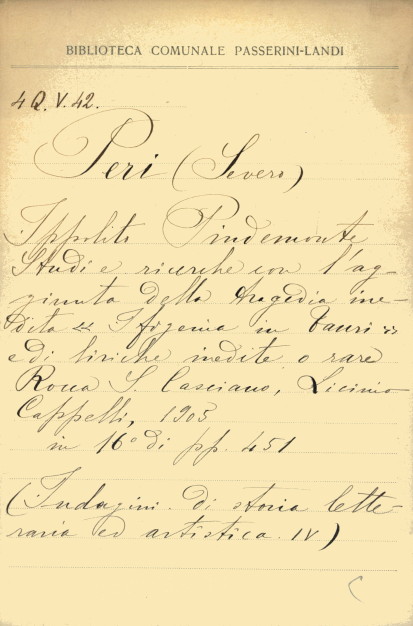 BIBLIOTECA COMUNALE PASSERINI-LANDI
4 Q. V. 42.
Peri (Severo)
Ippolito Pindemonte
Studi e ricerche con l'ag-
giunta della tragedia ine-
dita « Ifigenia in Tauri »
e di liriche inedite o rare
Rocca S. Casciano, Licinio
Cappelli, 1905
in 16° di pp. 451
(Indagini di storia lette-
raria ed artistica. IV)